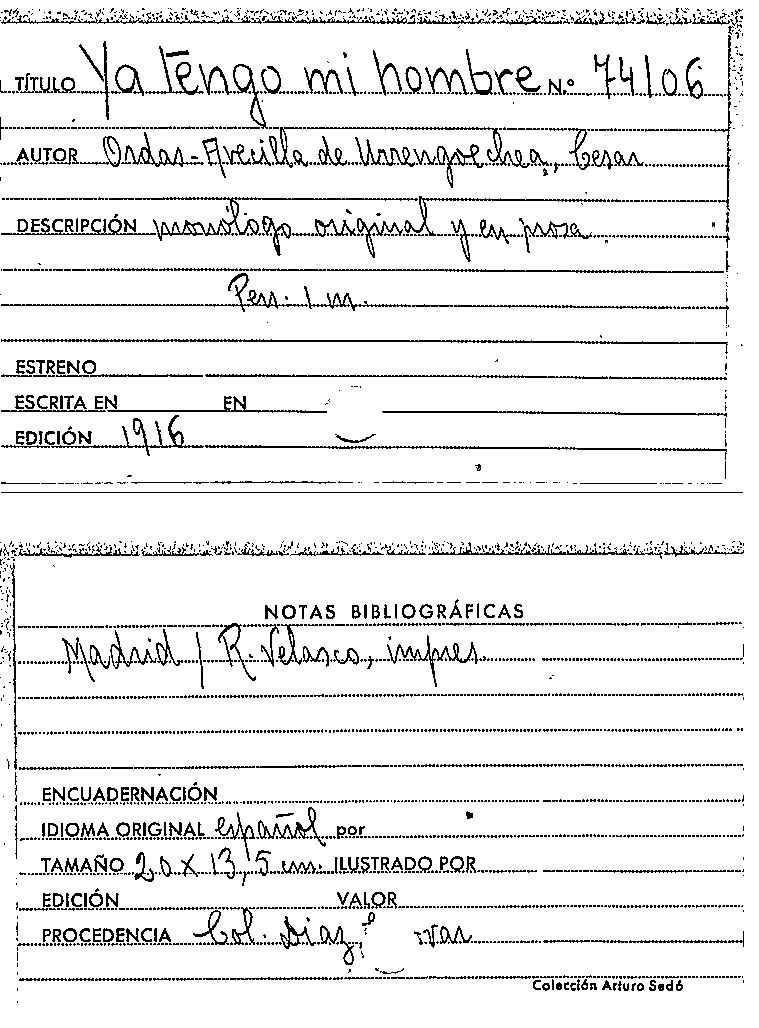 TÍTULO Ya tengo mi hombre N.º 74106
AUTOR Ordas-Avecilla de Urrengoechea, Cesar
DESCRIPCIÓN monólogo original y en prosa.
Pers. 1 m.
ESTRENO
ESCRITA EN EN
EDICIÓN 1916
NOTAS BIBLIOGRÁFICAS
Madrid / R. Velasco, impres.
ENCUADERNACIÓN
IDIOMA ORIGINAL español por
TAMAÑO 20 X 13,5 cm. ILUSTRADO POR
EDICIÓN VALOR
PROCEDENCIA Col. Diaz
Colección Arturo Sedó